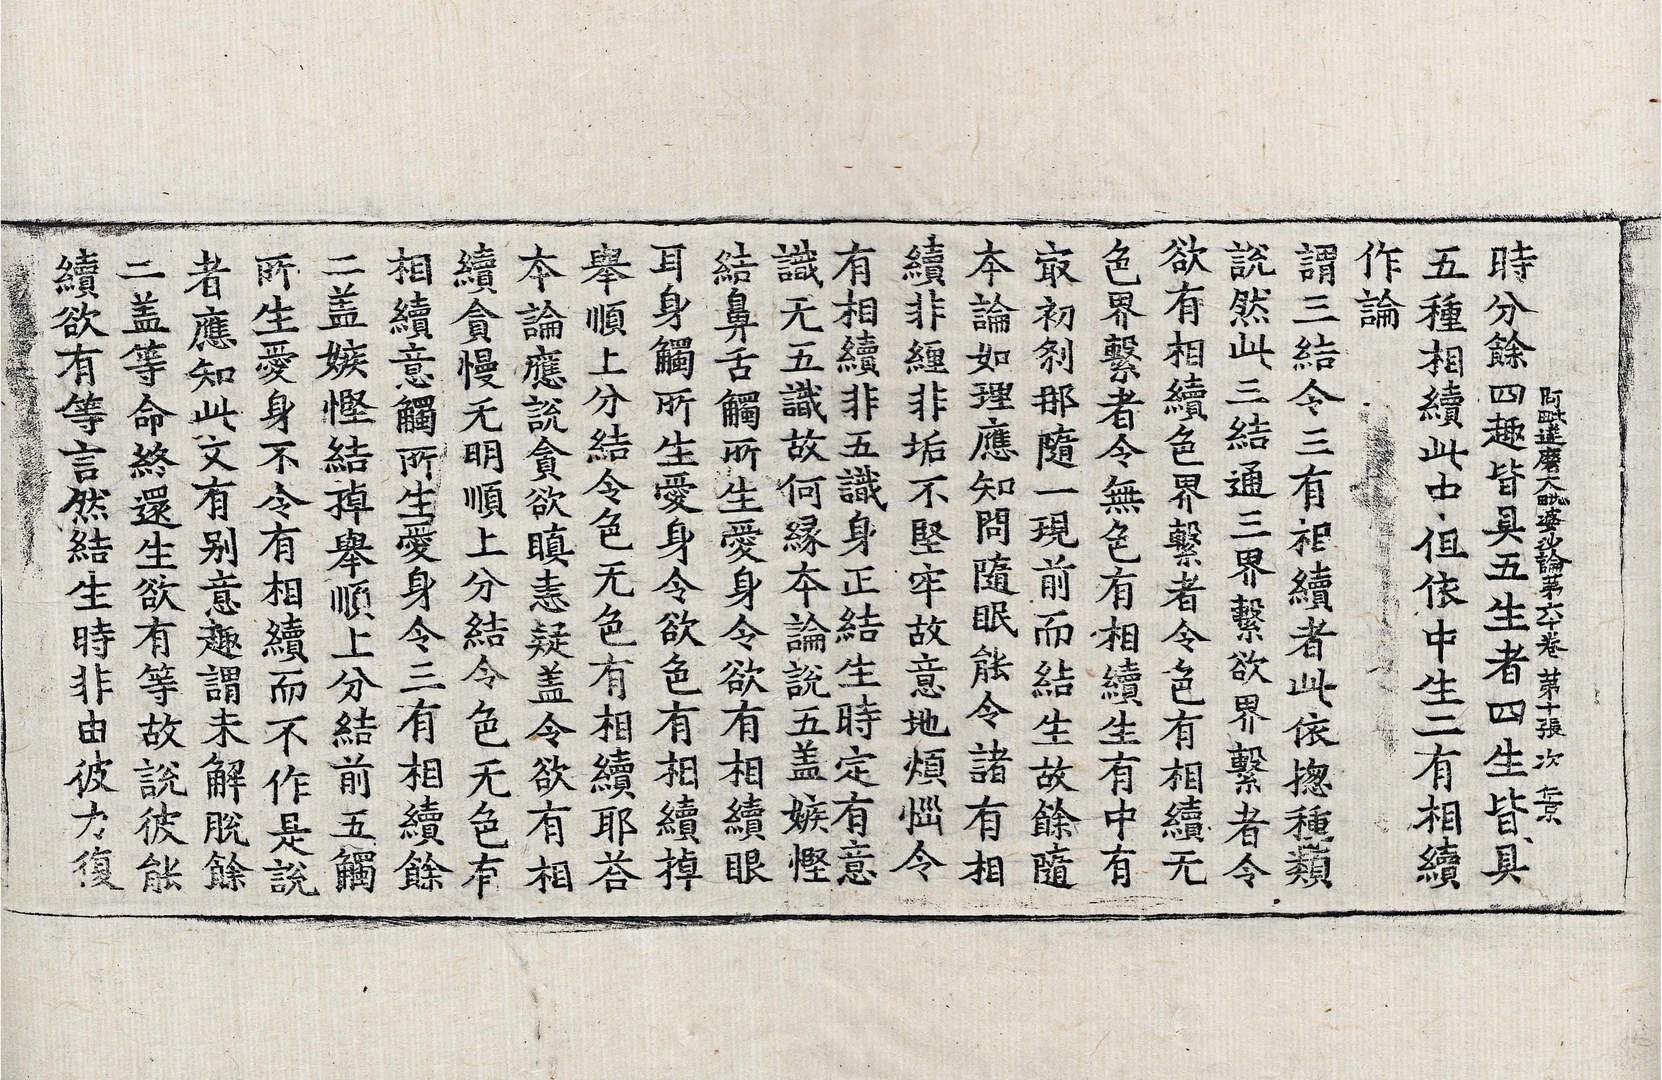 時分餘四趣皆具五生者四生皆具
阿毗達磨大毗婆沙論第六十卷 第十張 次
五種相續此中但依中生二有相續
作論
謂三結令三有相續者此依揔種類
說然此三結通三界繫欲界繫者令
欲有相續色界繫者令色有相續无
色界繫者令無色有相續生有中有
㝡初刹那隨一現前而結生故餘隨
本論如理應知問隨眠能令諸有相
續非纏非垢不堅牢故意地煩惱令
有相續非五識身正結生時定有意
識无五識故何縁本論說五盖嫉慳
結鼻舌觸所生愛身令欲有相續眼
耳身觸所生愛身令欲色有相續掉
舉順上分結令色无色有相續耶荅
本論應說貪欲瞋恚疑盖令欲有相
續貪慢无明順上分結令色无色有
相續意觸所生愛身令三有相續餘
二盖嫉慳結掉舉順上分結前五觸
所生愛身不令有相續而不作是說
者應知此文有别意趣謂未解脫餘
二盖等命終還生欲有等故說彼能
續欲有等言然結生時非由彼力復